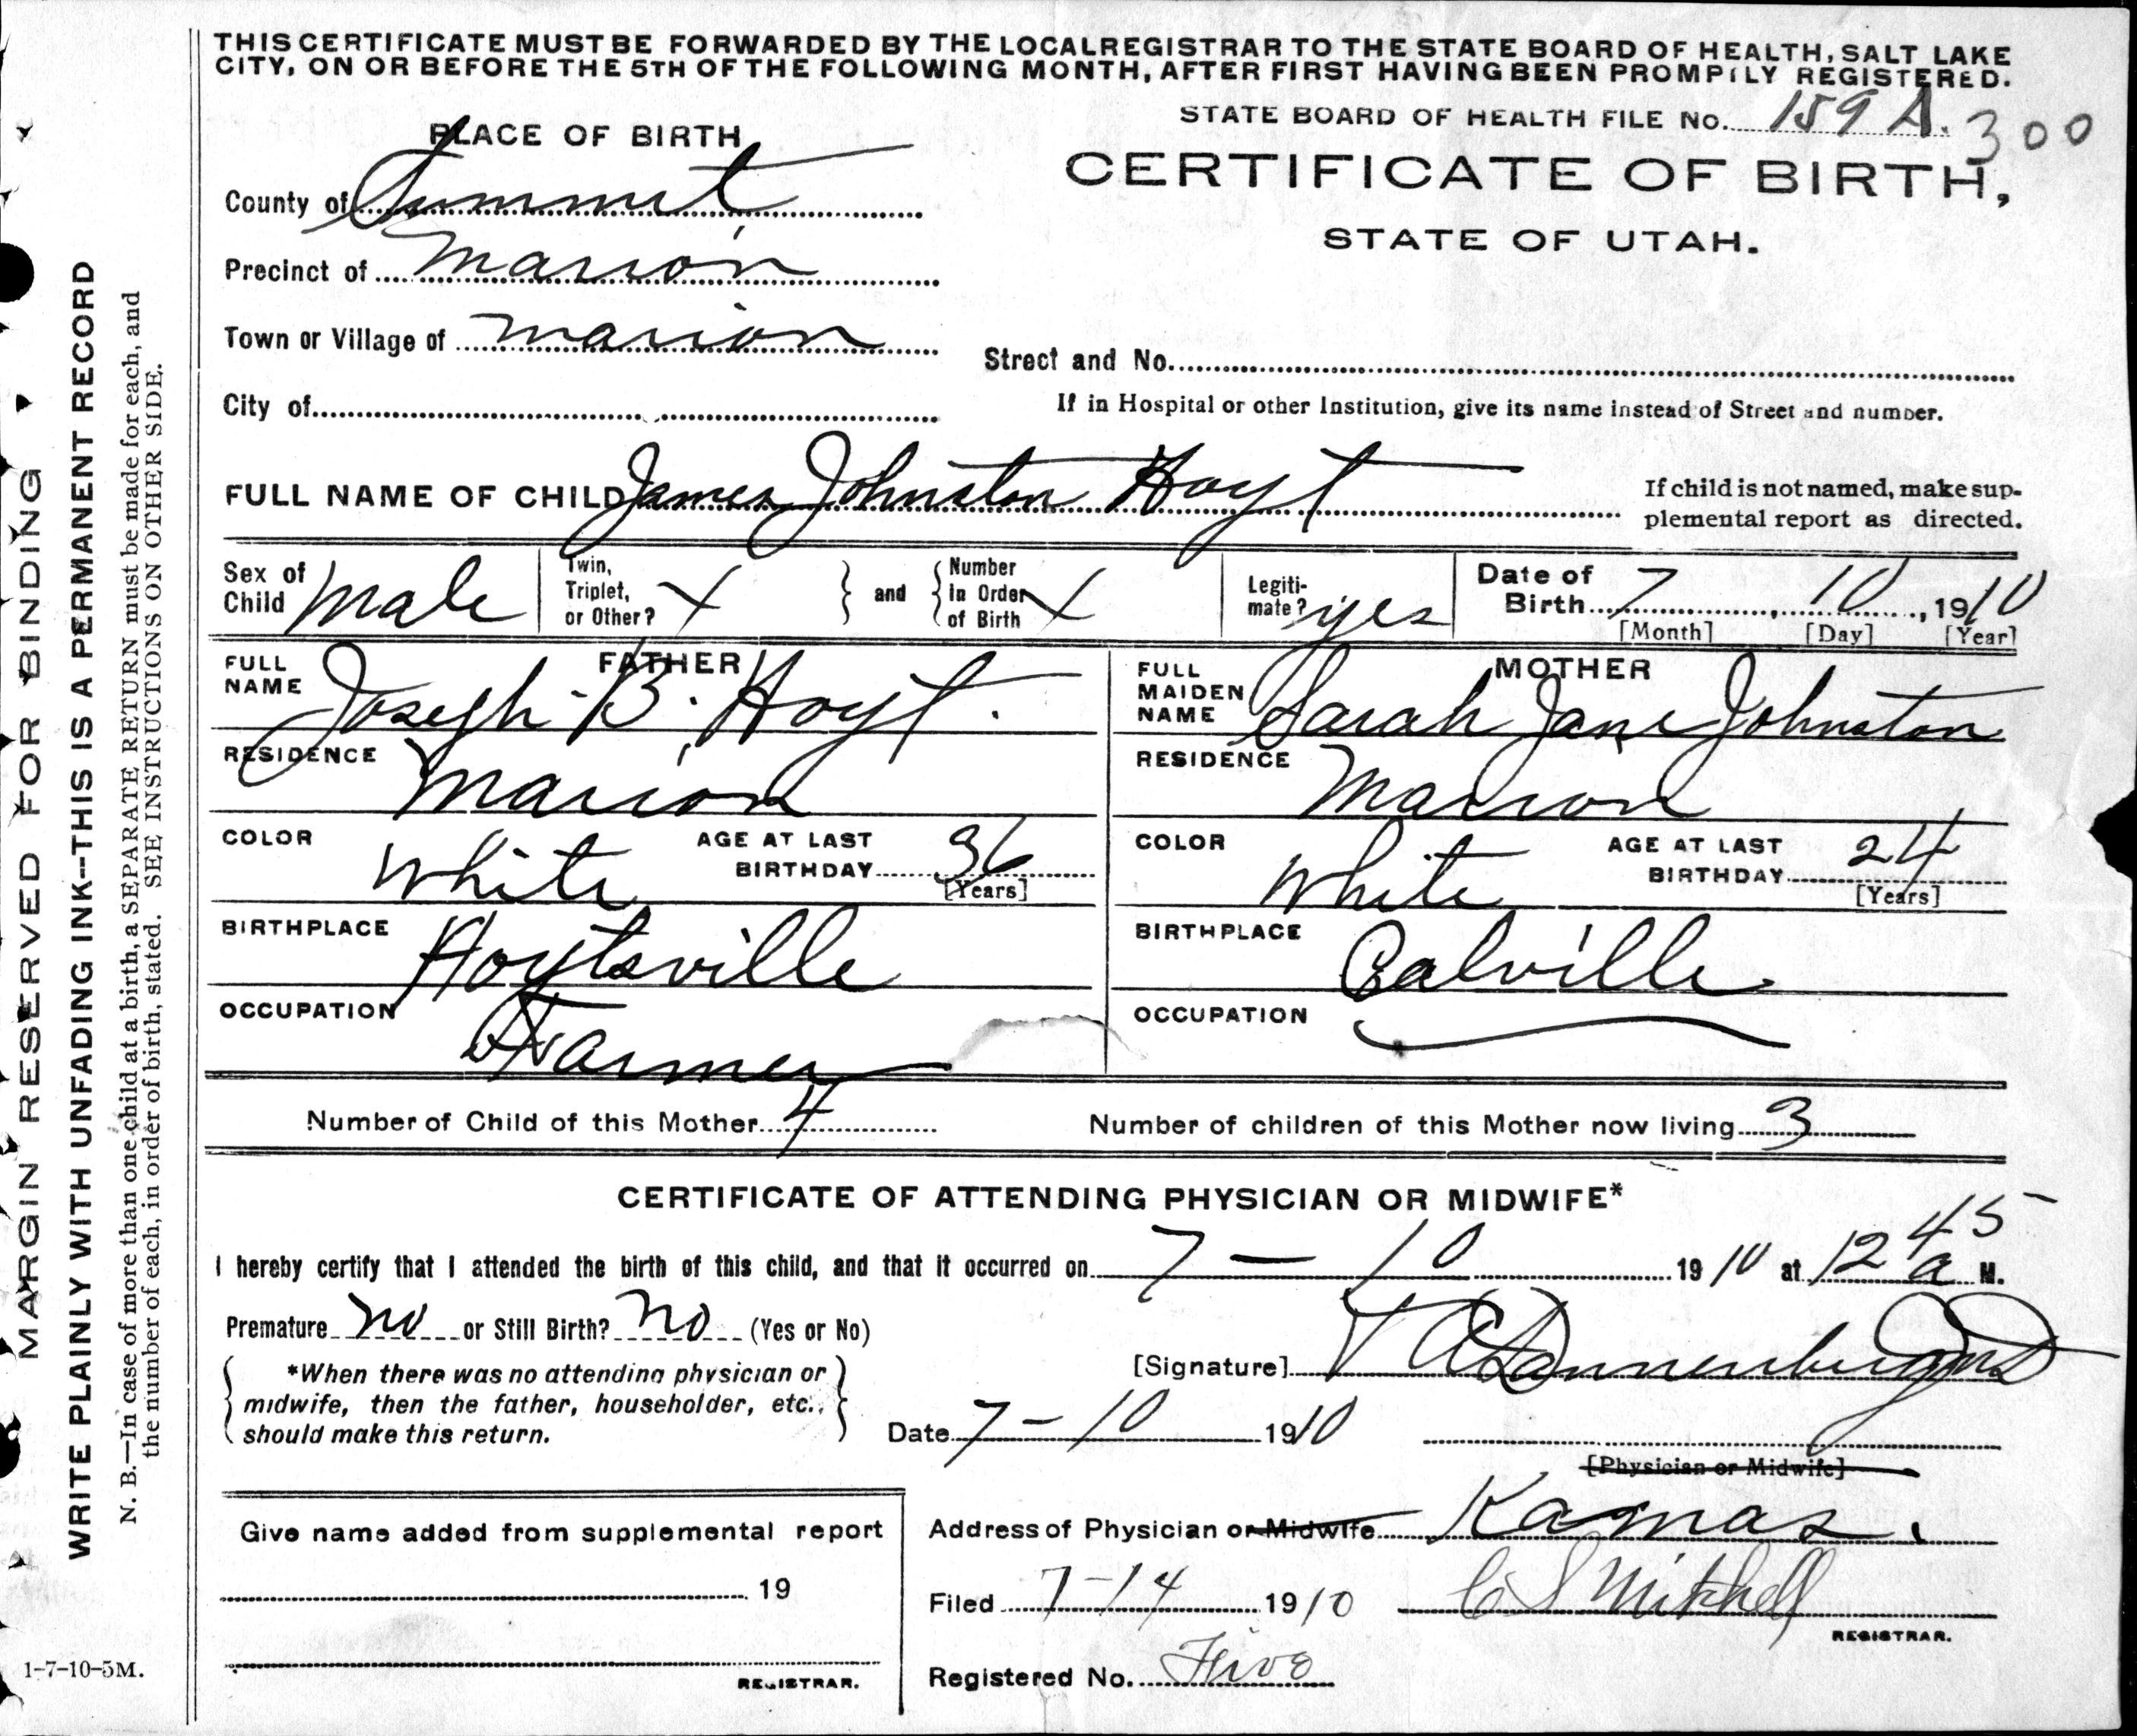 THIS CERTIFICATE MUST BE FORWARDED BY THE LOCAL REGISTRAR TO THE STATE BOARD OF HEALTH, SALT LAKE
CITY, ON OR BEFORE THE 5TH OF THE FOLLOWING MONTH, AFTER FIRST HAVING BEEN PROMPTLY REGISTERED.
STATE BOARD OF HEALTH FILE No. 159 A. 300
PLACE OF BIRTH
CERTIFICATE OF BIRTH,
STATE OF UTAH.
County of Summit
Precinct of Marion
Town or Village of Marion
Street and No.
City of
If in Hospital or other Institution, give its name instead of Street and number.
FULL NAME OF CHILD James Johnston Hoyt
If child is not named, make sup-
plemental report as directed.
Sex of Child Male
Twin, Triplet, or Other? X
and
Number in Order of Birth X
Legiti-mate? yes
Date of Birth 7, 10, 1910
[Month] [Day] [Year]
FATHER
FULL NAME Joseph B. Hoyt.
RESIDENCE Marion
COLOR White AGE AT LAST BIRTHDAY 36
[Years]
BIRTHPLACE Hoytsville
OCCUPATION Farmer
MOTHER
FULL MAIDEN NAME Sarah Jane Johnston
RESIDENCE Marion
COLOR White AGE AT LAST BIRTHDAY 24
[Years]
BIRTHPLACE Calville
OCCUPATION
Number of Child of this Mother 4 Number of children of this Mother now living 3
CERTIFICATE OF ATTENDING PHYSICIAN OR MIDWIFE*
I hereby certify that I attended the birth of this child, and that it occurred on 7 — 10 1910 at 12 45 a M.
Premature no or Still Birth? no (Yes or No)
*When there was no attending physician or
midwife, then the father, householder, etc.,
should make this return.
[Signature] Dannenberg
Date 7 - 10 1910
[Physician or Midwife]
Address of Physician or Midwife Kamas.
Filed 7-14 1910 C S Mitchell
REGISTRAR.
Registered No. Five
Give name added from supplemental report
19
REGISTRAR.
MARGIN RESERVED FOR BINDING
WRITE PLAINLY WITH UNFADING INK--THIS IS A PERMANENT RECORD
N. B.—In case of more than one child at a birth, a SEPARATE RETURN must be made for each, and
the number of each, in order of birth, stated. SEE INSTRUCTIONS ON OTHER SIDE.
1-7-10-5M.